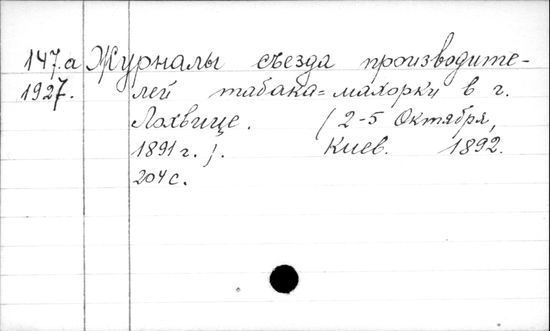 147.а Журналы съезда производите-
1927. лей табака=махорки в г.
Лохвице. (2-5 Октября,
1891 г.). Киев. 1892.
204 с.